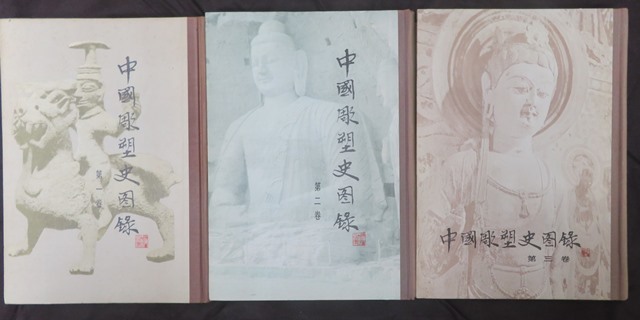 中國雕塑史图錄
第一卷
中國雕塑史图錄
第二卷
中國雕塑史图錄
第三卷